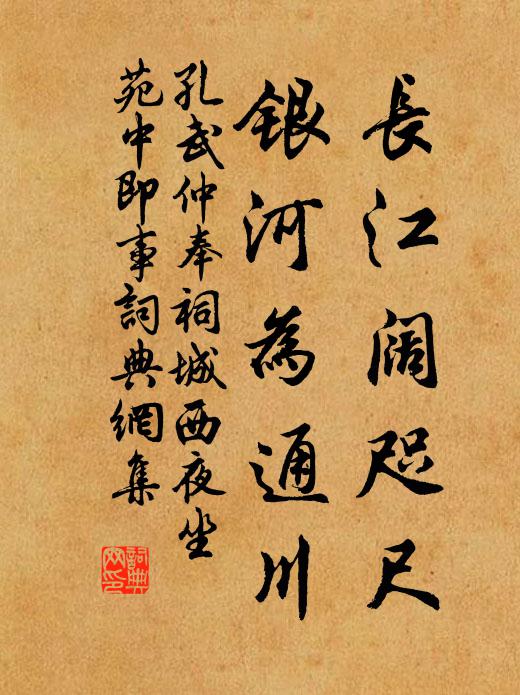 長江闊咫尺
銀河為通川
孔武仲奉祠城西夜坐
苑中即事詞典網集
詞典
网印